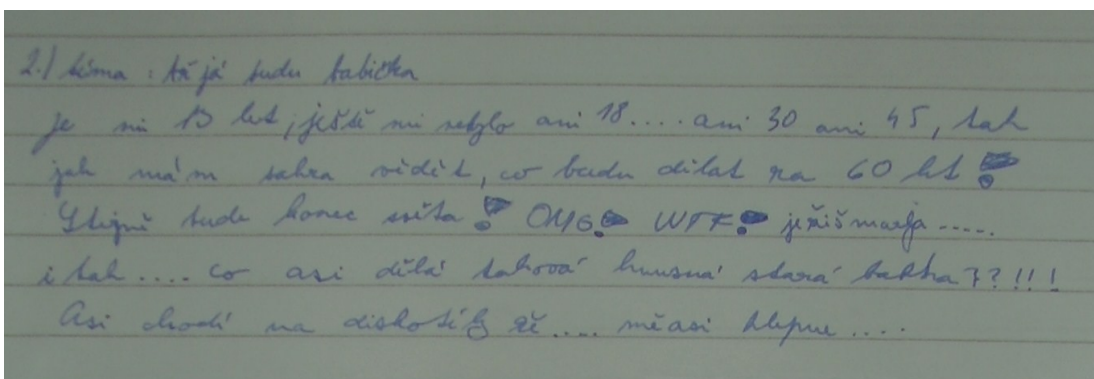 2.) téma: až já budu babička
je mi 13 let, ještě mi nebylo ani 18.... ani 30 ani 45, tak
jak mám sakra vědět, co budu dělat na 60 let?
Stejně bude konec světa! OMG! WTF! ježišmarja.....
i tak.... co asi dělá taková hnusná stará babka??!!!
Asi chodí na diskotéky že.... mě asi klepne....